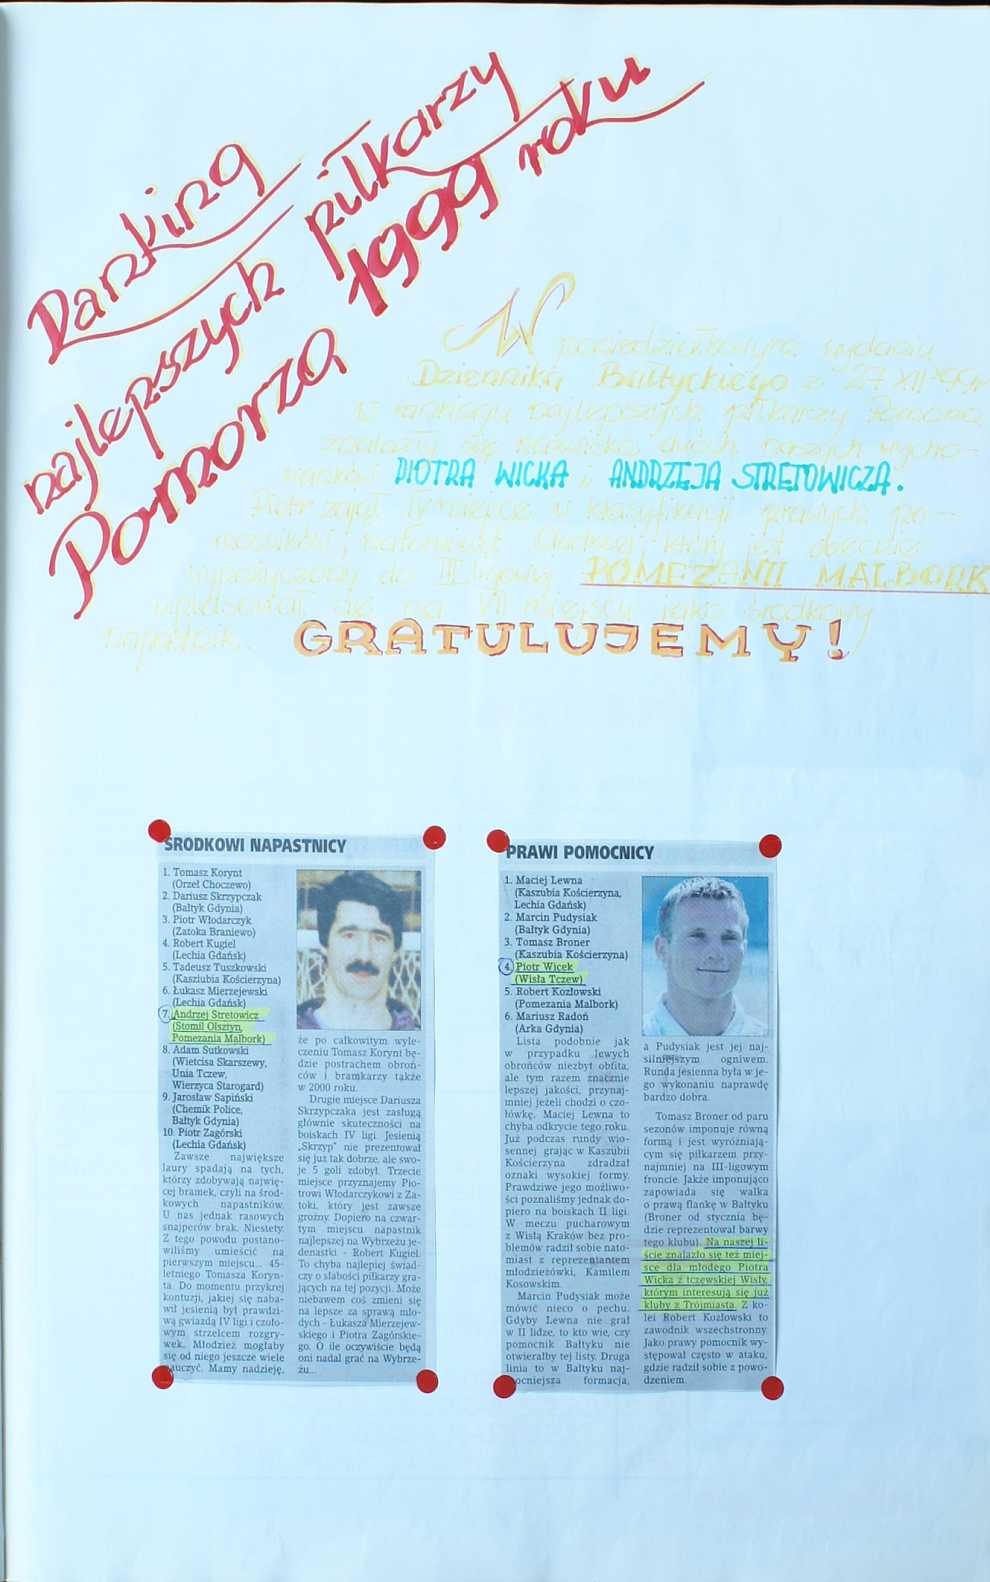 Ranking
najlepszych piłkarzy
Pomorza 1999 roku
W poniedziałkowym wydaniu
Dziennika Bałtyckiego z 27 XII 99r
w rankingu najlepszych piłkarzy Pomorza
znalazły się nazwiska dwóch naszych wycho-
wanków PIOTRA WICKA i ANDRZEJA STRETOWICZA.
Piotr zajął IV miejsce w klasyfikacji prawych po-
mocników, natomiast Andrzej, który jest obecnie
wypożyczony do III ligowej POMEZANII MALBORK
uplasował się na VII miejscu jako środkowy
napastnik.
GRATULUJEMY!
ŚRODKOWI NAPASTNICY
1. Tomasz Korynt
(Orzeł Choczewo)
2. Dariusz Skrzypczak
(Bałtyk Gdynia)
3. Piotr Włodarczyk
(Zatoka Braniewo)
4. Robert Kugiel
(Lechia Gdańsk)
5. Tadeusz Tuszkowski
(Kaszlubia Kościerzyna)
6. Łukasz Mierzejewski
(Lechia Gdańsk)
7. Andrzej Stretowicz
(Stomil Olsztyn,
Pomezania Malbork)
8. Adam Sutkowski
(Wietcisa Skarszewy,
Unia Tczew,
Wierzyca Starogard)
9. Jarosław Sapiński
(Chemik Police,
Bałtyk Gdynia)
10. Piotr Zagórski
(Lechia Gdańsk)
Zawsze największe
laury spadają na tych,
którzy zdobywają najwię-
cej bramek, czyli na środ-
kowych napastników.
U nas jednak rasowych
snajperów brak. Niestety.
Z tego powodu postano-
wiliśmy umieścić na
pierwszym miejscu... 45-
letniego Tomasza Koryn-
ta. Do momentu przykrej
kontuzji, jakiej się naba-
wił jesienią był prawdzi-
wą gwiazdą IV ligi i czoło-
wym strzelcem rozgry-
wek. Młodzież mogłaby
się od niego jeszcze wiele
nauczyć. Mamy nadzieję,
że po całkowitym wyle-
czeniu Tomasz Korynt bę-
dzie postrachem obroń-
ców i bramkarzy także
w 2000 roku.
Drugie miejsce Dariusza
Skrzypczaka jest zasługą
głównie skuteczności na
boiskach IV ligi. Jesienią
„Skrzyp" nie prezentował
się już tak dobrze, ale swo-
je 5 goli zdobył. Trzecie
miejsce przyznajemy Pio-
trowi Włodarczykowi z Za-
toki, który jest zawsze
groźny. Dopiero na czwar-
tym miejscu napastnik
najlepszej na Wybrzeżu je-
denastki - Robert Kugiel.
To chyba najlepiej świad-
czy o słabości piłkarzy gra-
jących na tej pozycji. Może
niebawem coś zmieni się
na lepsze za sprawą mło-
dych - Łukasza Mierzejew-
skiego i Piotra Zagórskie-
go. O ile oczywiście będą
oni nadal grać na Wybrze-
żu...
PRAWI POMOCNICY
1. Maciej Lewna
(Kaszubia Kościerzyna,
Lechia Gdańsk)
2. Marcin Pudysiak
(Bałtyk Gdynia)
3. Tomasz Broner
(Kaszubia Kościerzyna)
4. Piotr Wicek
(Wisła Tczew)
5. Robert Kozłowski
(Pomezania Malbork)
6. Mariusz Radoń
(Arka Gdynia)
Lista podobnie jak
w przypadku lewych
obrońców niezbyt obfita,
ale tym razem znacznie
lepszej jakości, przynaj-
mniej jeżeli chodzi o czo-
łówkę. Maciej Lewna to
chyba odkrycie tego roku.
Już podczas rundy wio-
sennej grając w Kaszubii
Kościerzyna zdradzał
oznaki wysokiej formy.
Prawdziwe jego możliwo-
ści poznaliśmy jednak do-
piero na boiskach II ligi.
W meczu pucharowym
z Wisłą Kraków bez pro-
blemów radził sobie nato-
miast z reprezentantem
młodzieżówki, Kamilem
Kosowskim.
Marcin Pudysiak może
mówić nieco o pechu.
Gdyby Lewna nie grał
w II lidze, to kto wie, czy
pomocnik Bałtyku nie
otwierałby tej listy. Druga
linia to w Bałtyku naj-
mocniejsza formacja,
a Pudysiak jest jej naj-
silniejszym ogniwem.
Runda jesienna była w je-
go wykonaniu naprawdę
bardzo dobra.
Tomasz Broner od paru
sezonów imponuje równą
formą i jest wyróżniają-
cym się piłkarzem przy-
najmniej na III-ligowym
froncie. Jakże imponująco
zapowiada się walka
o prawą flankę w Bałtyku
(Broner od stycznia bę-
dzie reprezentował barwy
tego klubu). Na naszej li-
ście znalazło się też miej-
sce dla młodego Piotra
Wicka z tczewskiej Wisły,
którym interesują się już
kluby z Trójmiasta. Z ko-
lei Robert Kozłowski to
zawodnik wszechstronny.
Jako prawy pomocnik wy-
stępował często w ataku,
gdzie radził sobie z powo-
dzeniem.